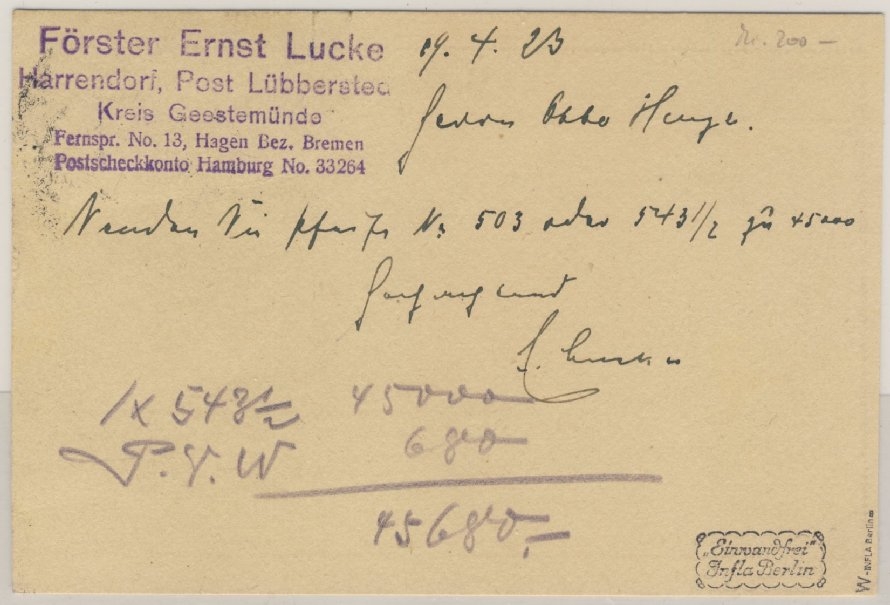 Förster Ernst Lucke
Harrendorf, Post Lübberstedt
Kreis Geestemünde
Fernspr. No. 13, Hagen Bez. Bremen
Postscheckkonto Hamburg No. 33264
19. 4. 23
Nr. 200 –
Herrn Otto
Senden Sie Pfeife Nr 503 oder 543 1/2 zu 45000
Hochachtend
E. Lucke
1 x 543 1/2 45000
P. V. W 680
45680,–
„Einwandfrei“
Infla Berlin
W-INFLA Berlin